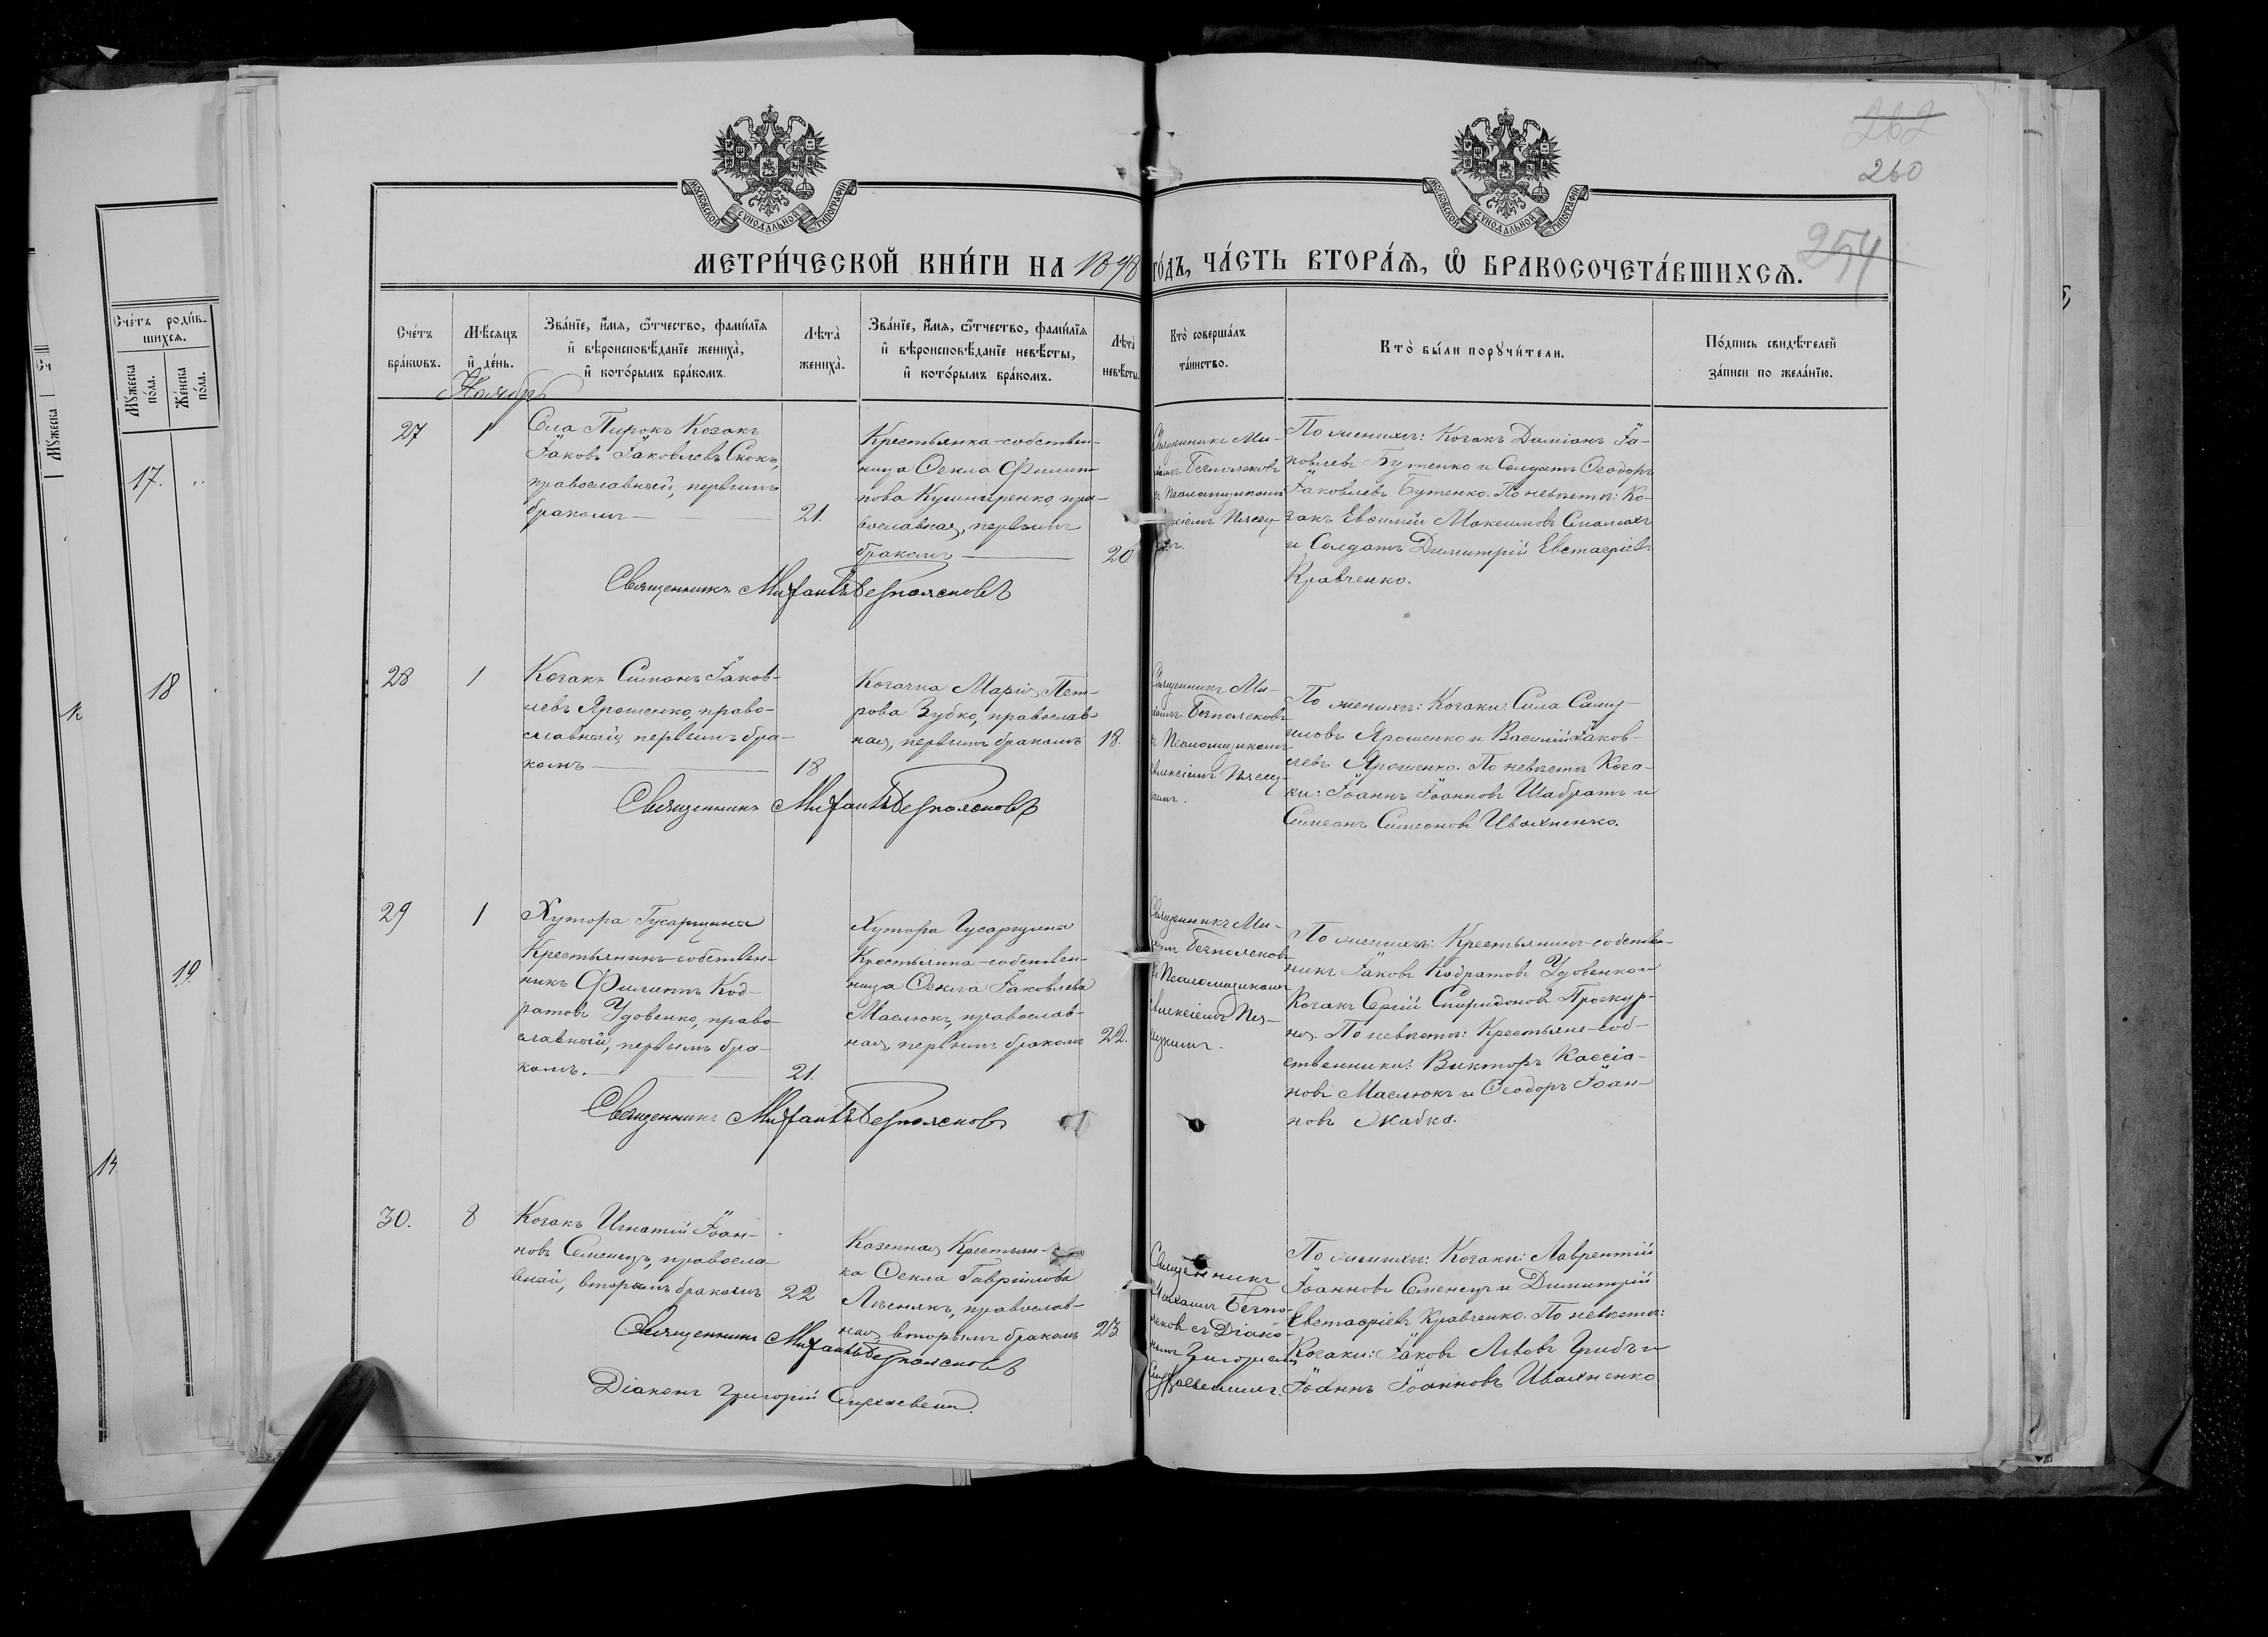 262
260
254
МОСКОВСКОЙ СѴНОДАЛЬНОЙ ТИПОГРАФІИ
МОСКОВСКОЙ СѴНОДАЛЬНОЙ ТИПОГРАФІИ
МЕТРИ́ЧЕСКОЙ КНИ́ГИ НА 1898 ГО́ДЪ, ЧА́СТЬ ВТОРА́Ѧ, Ѡ҆ БРАКОСОЧЕТА́ВШИХСѦ.
Сче́тъ
бра́кѡвъ.
Мѣ́сѧцъ
и҆ де́нь.
Зва́нїе, и҆́мѧ, ѻ҆́тчество, фами́лїѧ
и҆ вѣроисповѣ́данїе жениха̀,
и҆ кото́рымъ бра́комъ.
Лѣ́та
жениха̀.
Зва́нїе, и҆́мѧ, ѻ҆́тчество, фами́лїѧ
и҆ вѣроисповѣ́данїе невѣ́сты,
и҆ кото́рымъ бра́комъ.
Лѣ́та
невѣ́сты.
Кто̀ соверша́лъ
та́инство.
Кто̀ бы́ли порꙋчи́тели.
По́дпись свидѣ́телей
за́писи по жела́нїю.
Ноябрь
27
1
Села Пирокъ Козакъ
Іаковъ Іаковлевъ Скокъ,
православный, первымъ
бракомъ
21.
Крестьянка-собствен-
ница Ѳекла Филип-
пова Кушниренко, пра-
вославная, первымъ
бракомъ
20
Священникъ Ми-
Безпоясковъ
съ Псаломщикомъ
По женихѣ: Козакъ Даміанъ Іа-
ковлевъ Бутенко и Солдатъ Ѳеодоръ
Іаковлевъ Бутенко. По невѣстѣ: Ко-
закъ Евѳимій Максимовъ
и Солдатъ Димитрій Евстафіевъ
Кравченко.
Священникъ Михаилъ Безпоясковъ
28
1
Козакъ Симонъ Іаков-
левъ Ярошенко, право-
славный, первымъ бра-
комъ
18
Козачка Марія Пет-
рова Зубко, православ-
ная, первымъ бракомъ
18.
Священникъ Ми-
хаилъ Безпоясковъ
съ Псаломщикомъ
Алексіемъ
По женихѣ: Козаки: Сила Саму-
иловъ Ярошенко и Василій Іаков-
левъ Ярошенко. По невѣстѣ Коза-
ки: Іоаннъ Іоанновъ Шабратъ и
Симеонъ Симеоновъ Ивахненко.
Священникъ Михаилъ Безпоясковъ
29
1
Хутора Гусарщина
Крестьянинъ-собствен-
никъ Филиппъ Код-
ратовъ Удовенко, право-
славный, первымъ бра-
комъ.
21.
Хутора Гусарщина
Крестьянка-собствен-
ница Ѳекла Іаковлева
Маслюкъ, православ-
ная, первымъ бракомъ
22.
Священникъ Ми-
хаилъ Безпоясковъ
съ Псаломщикомъ
Алексіемъ
По женихѣ: Крестьянинъ-собствен-
никъ Іаковъ Кодратовъ Удовенко и
Козакъ Сергій Спиридоновъ Проскур-
ня. По невѣстѣ: Крестьяне-соб-
ственники: Викторъ Кассіа-
новъ Маслюкъ и Ѳеодоръ Іоан-
новъ Жабка.
Священникъ Михаилъ Безпоясковъ
30.
8
Козакъ Игнатій Іоан-
новъ Семенецъ, правосла-
вный, вторымъ бракомъ
22
Казенная Крестьян-
ка Ѳекла Гавріилова
Лѣснякъ, православ-
ная, вторымъ бракомъ
23.
Священникъ
Михаилъ Безпо-
ясковъ съ Діако-
номъ Григоріемъ
По женихѣ: Козаки: Лаврентій
Іоанновъ Семенецъ и Димитрій
Евстафіевъ Кравченко. По невѣстѣ:
Козаки: Іаковъ Львовъ Грибъ и
Іоаннъ Іоанновъ Ивахненко
Священникъ Михаилъ Безпоясковъ
Діаконъ Григорій
Сче́тъ роди́в-
шихсѧ.
Мꙋ́жеска
по́ла.
Же́нска
по́ла.
17.
18
19.
14